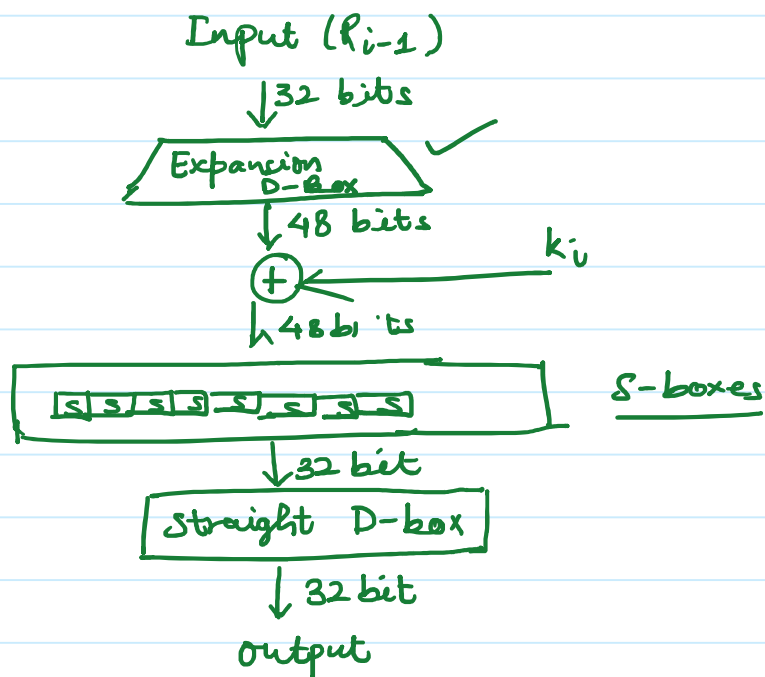 Input (Ri-1)
32 bits
Expansion
D-Box
48 bits
+
ki
48 bits
S S S S S S S S
S-boxes
32 bit
straight D-box
32 bit
output